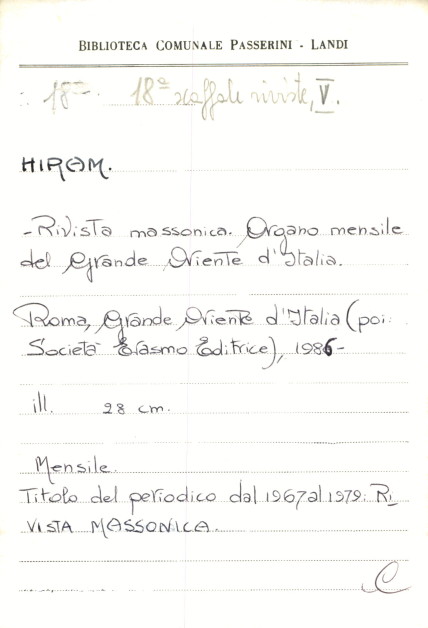 BIBLIOTECA COMUNALE PASSERINI - LANDI
18ª 18ª scaffale riviste, V.
HIRAM.
- Rivista massonica. Organo mensile
del Grande Oriente d'Italia.
Roma, Grande Oriente d'Italia (poi
Società Erasmo Editrice), 1986-
ill. 28 cm.
Mensile.
Titolo del periodico dal 1967 al 1979: RI-
VISTA MASSONICA.
C